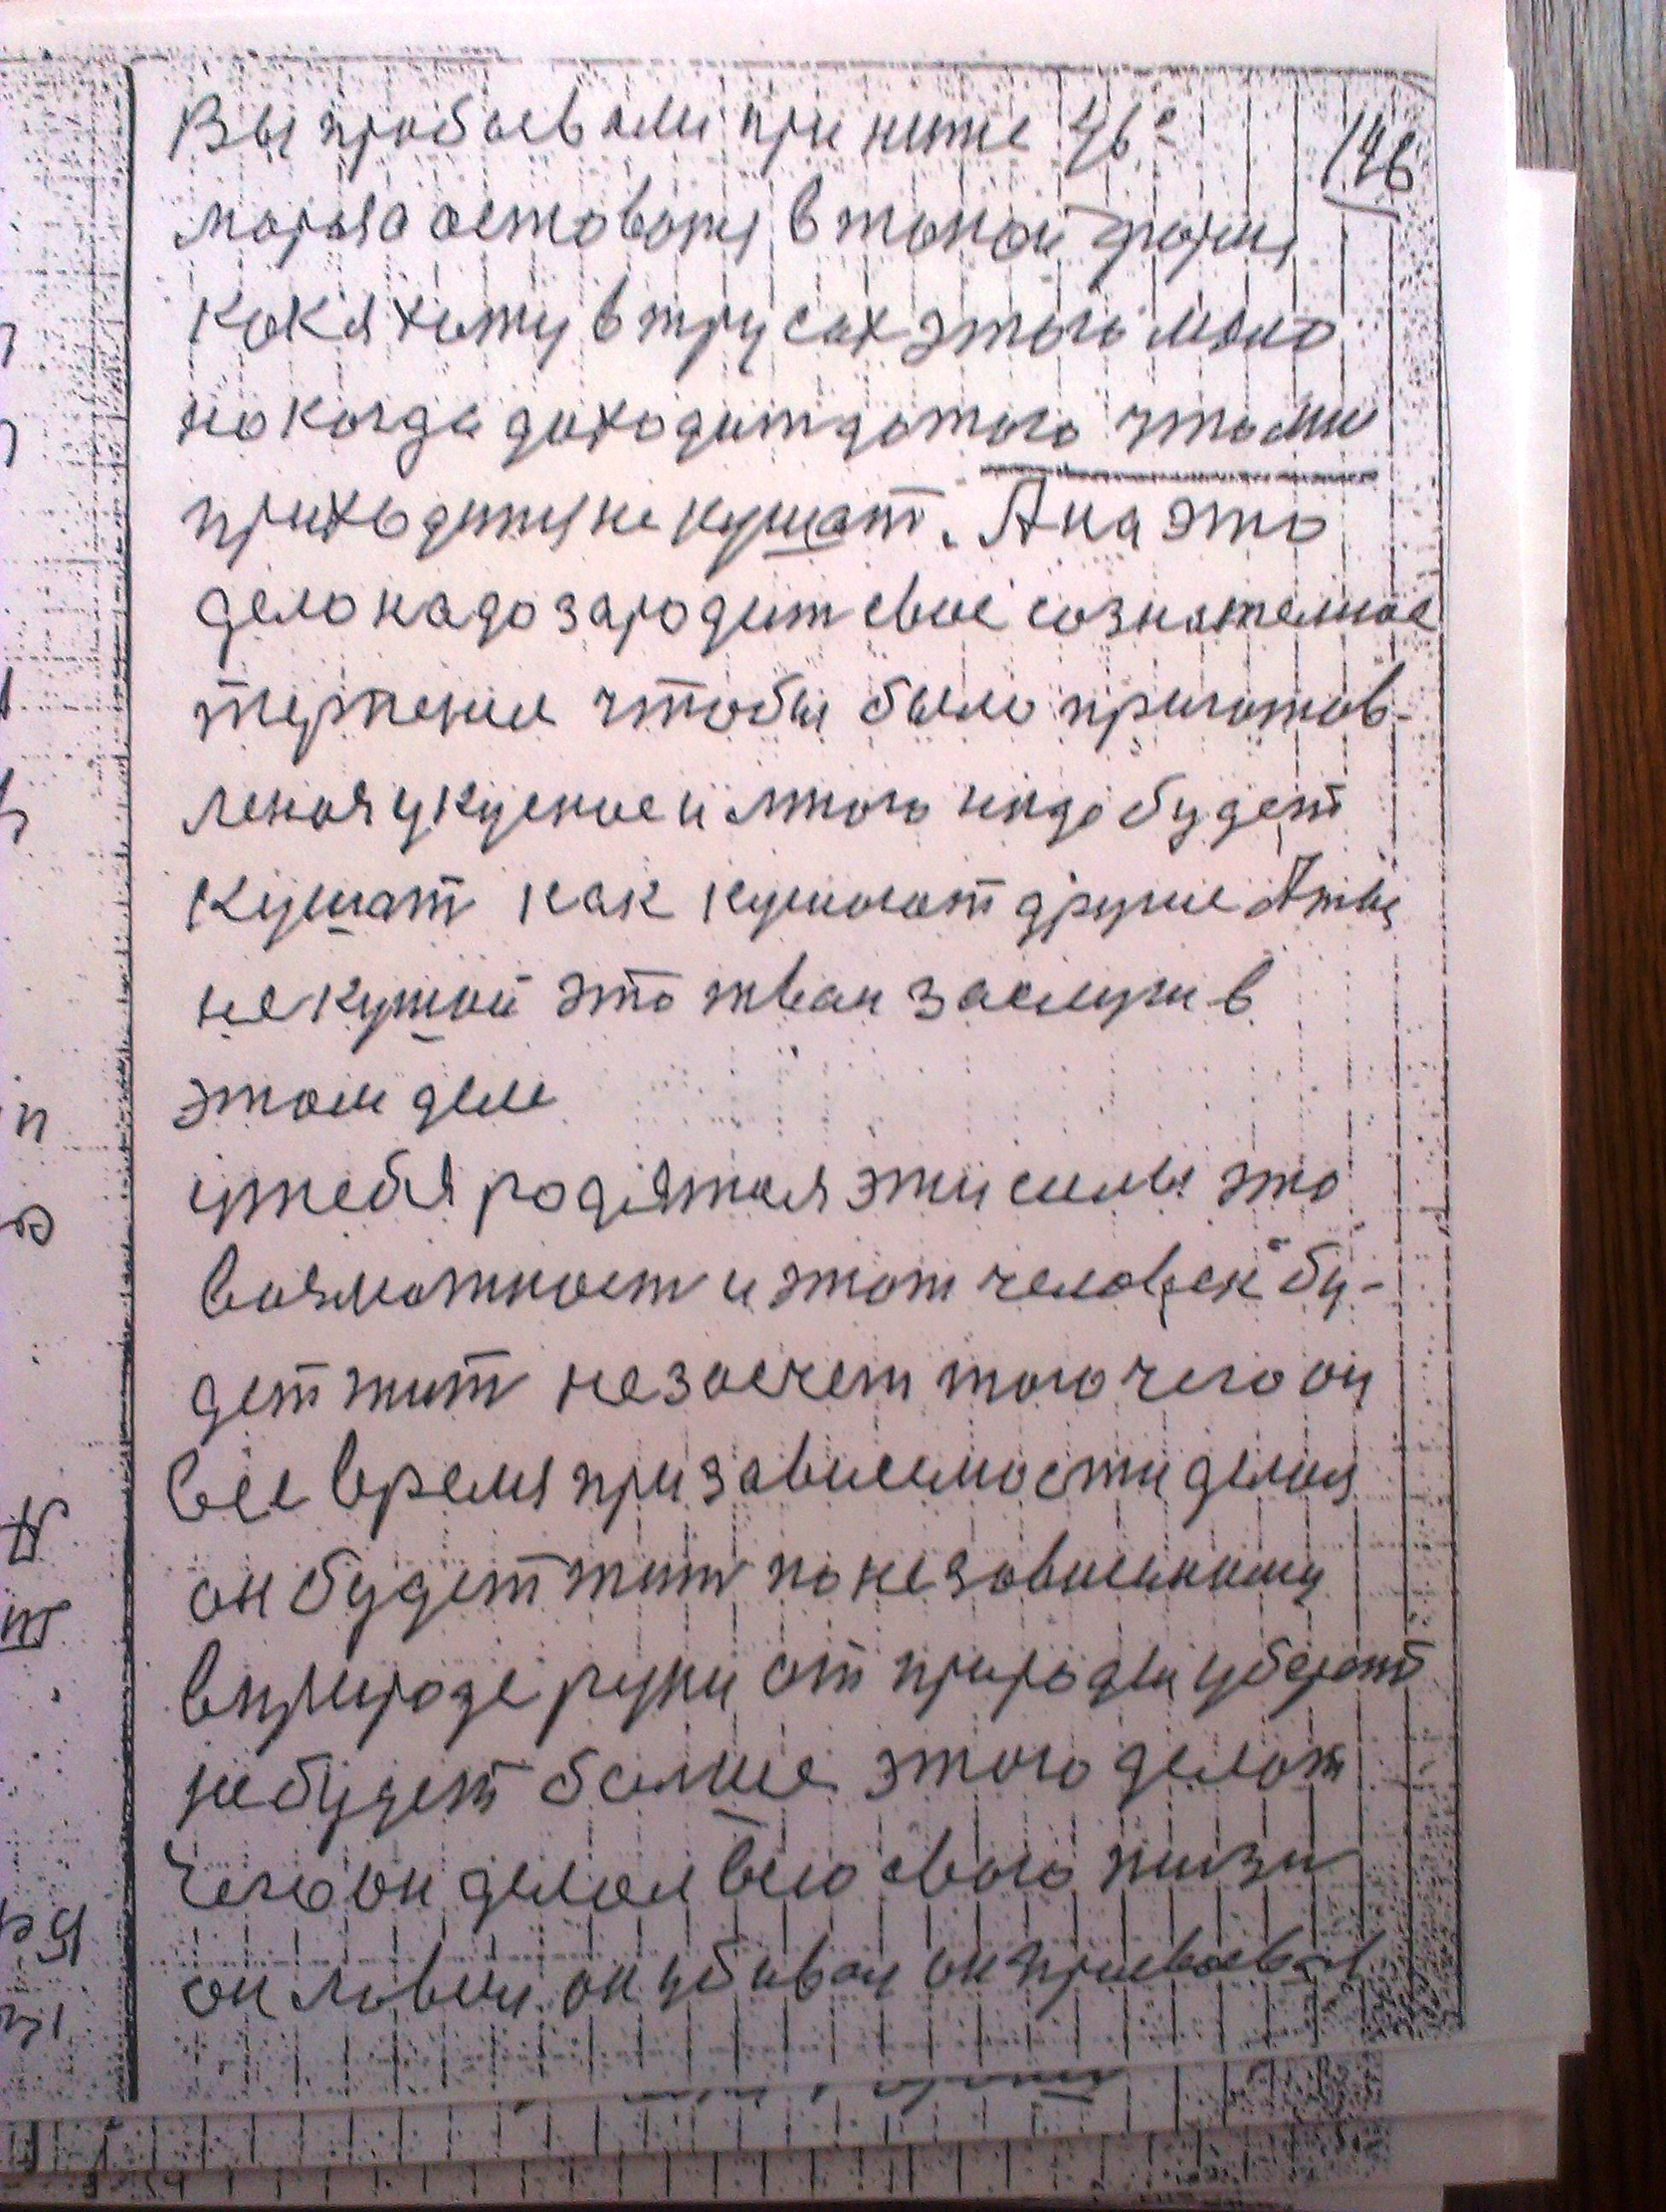 Вы пробывали при ниже 46°
146
мороза оставатся в такой форме
как я хожу в трусах этого мало
но когда доходит до того что мне
приходится не кушат. А на это
дело надо зародит свое сознателное
терпение чтобы было приготов-
леная укусное и много надо будет
кушат как кушают другие А ты
не кушай это твои заслуги в
этом деле
у тебя родятся эти силы это
возможност и этот человек бу-
дет жит не за счет того чего он
все время при зависемости делал
он будет жит по независимому
в природе руки от природы уберет
не будет болше этого делат
чего он делал всю свою жизн
он ловил он убивал он присвоевал